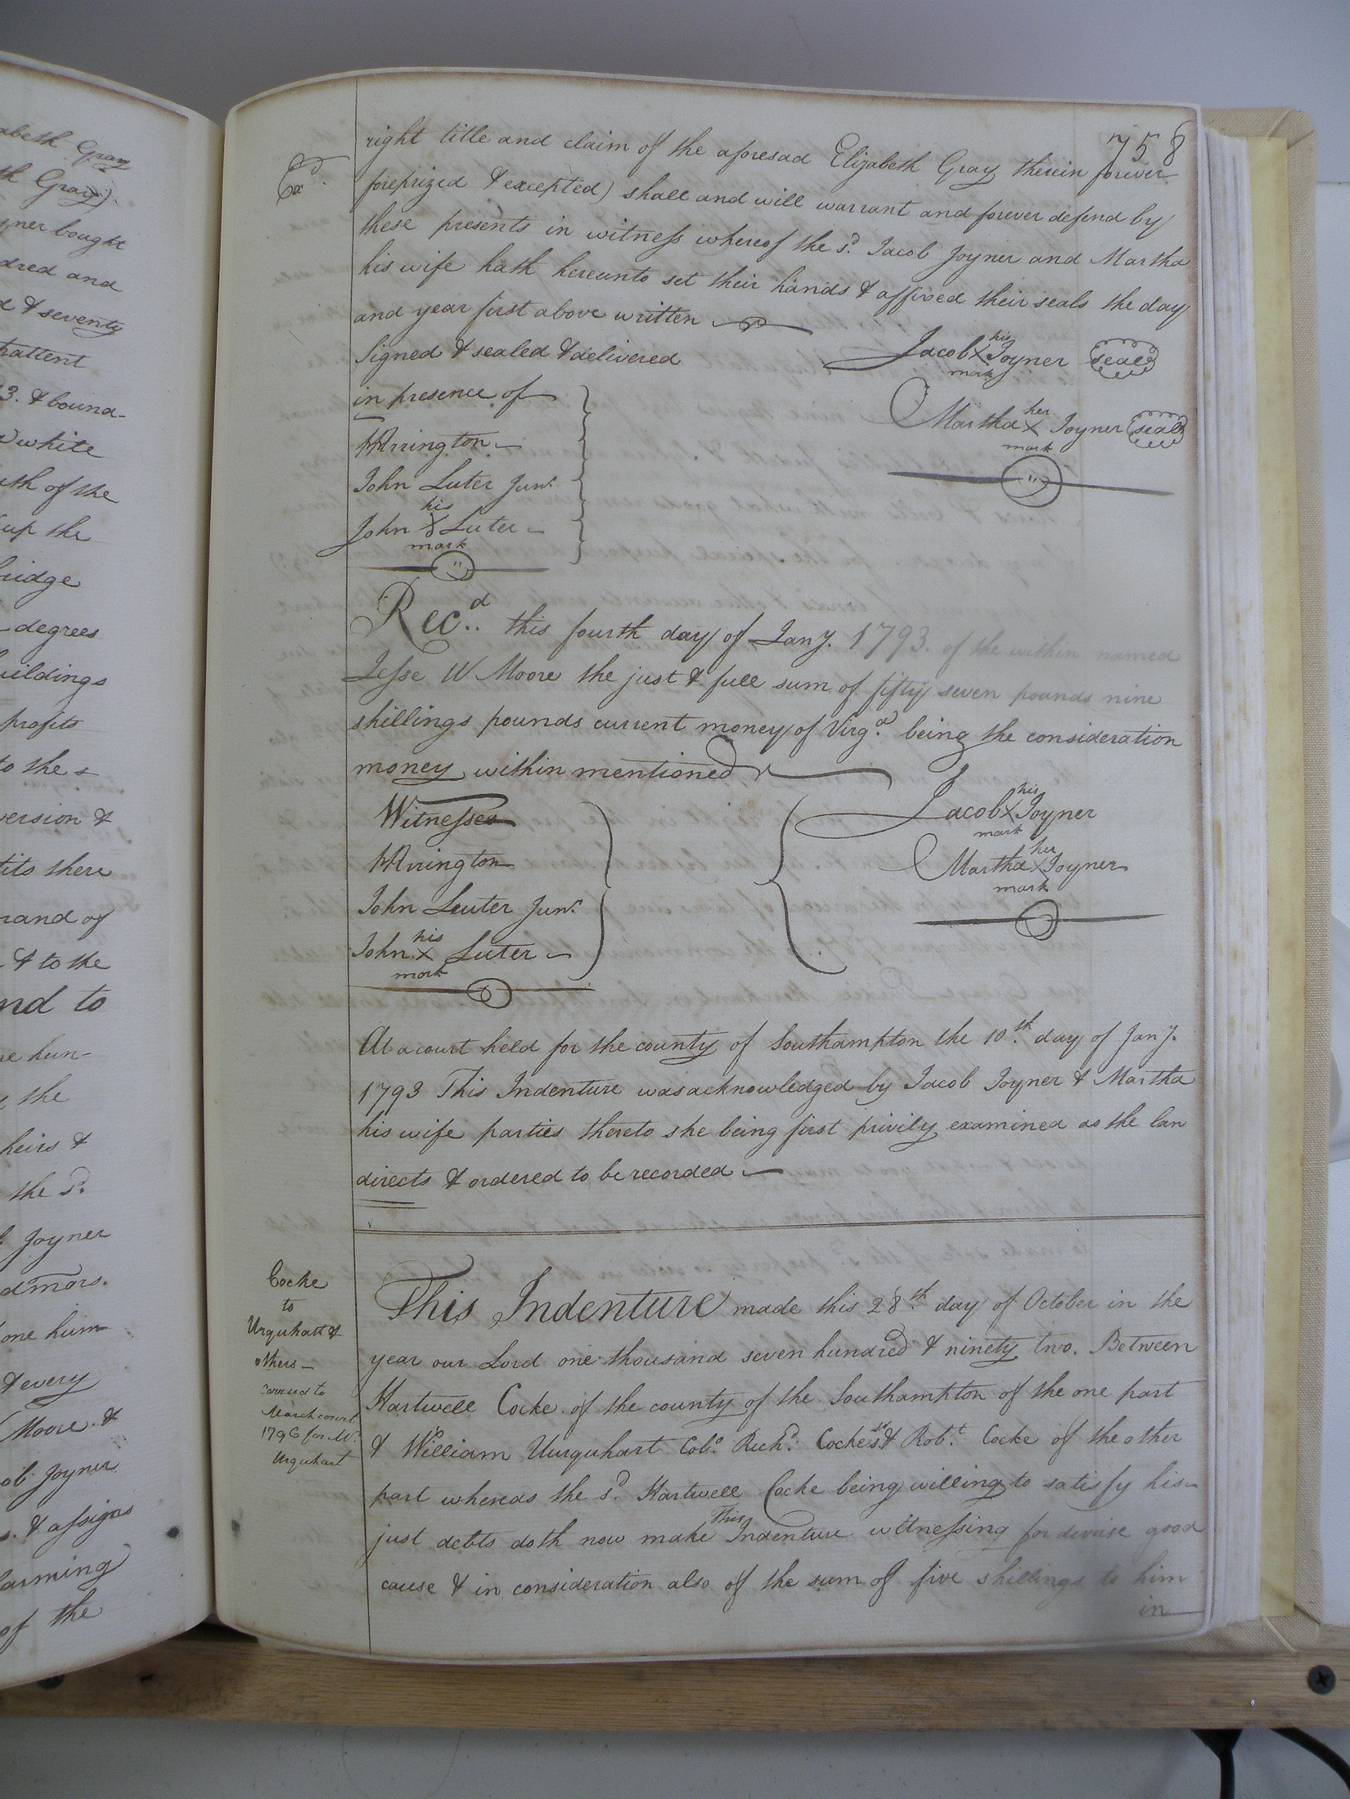 abeth Gray
th Gray)
yner bought
dred and
d & seventy
pattent
3. & bound-
white
uth of the
up the
bridge
degrees
uildings
profits
to the
version &
tits there
mand of
& to the
nd to
ne hun-
the
heirs &
the sd.
Joyner
admors.
one hun-
& every
Moore &
ob Joyner
s. & assigns
farming
of the
758
Exd.
right title and claim of the aforesad Elizabeth Gray therein forever
foreprized & excepted) shall and will warrant and forever defend by
these presents in witness whereof the sd. Jacob Joyner and Martha
his wife hath hereunto set their hands & affixed their seals the day
and year first above written
Signed & sealed & delivered
in presence of
WArrington
John Luter Junr.
his
John X Luter
mark
his
Jacob X Joyner seal
mark
her
Martha X Joyner seal
mark
Recd.. this fourth day of Jany. 1793. of the within named
Jesse W Moore the just & full sum of fifty seven pounds nine
shillings pounds current money of Virga. being the consideration
money within mentioned
Witnesses
WArrington
John Luter Junr.
his
John X Luter
mark
his
Jacob X Joyner
mark
her
Martha X Joyner
mark
At a court held for the county of Southampton the 10th. day of Jany.
1793 This Indenture was acknowledged by Jacob Joyner & Martha
his wife parties thereto she being first privily examined as the law
directs & ordered to be recorded
Cocke
to
Urquhart &
others
March court
1796 for Mr.
Urquhart
This Indenture made this 28th day of October in the
year our Lord one thousand seven hundred & ninety two. Between
Hartwell Cocke of the county of the Southampton of the one part
& William Uurquhart Colo. Richd. Cocke & Robt. Cocke of the other
part whereas the sd. Hartwell Cocke being willing to satisfy his
just debts doth now make this Indenture witnessing for divrise good
cause & in consideration also of the sum of five shillings to him
in